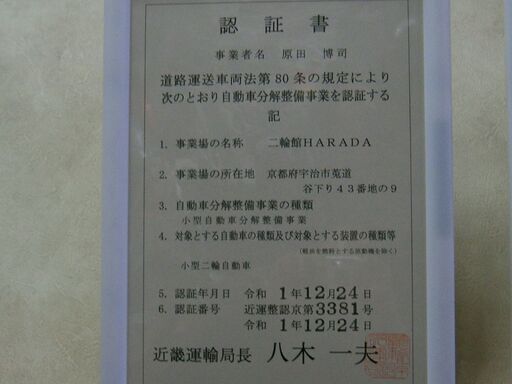 認証書
事業者名 原田 博司
道路運送車両法第80条の規定により
次のとおり自動車分解整備事業を認証する
記
1. 事業場の名称 二輪館HARADA
2. 事業場の所在地 京都府宇治市莵道
谷下り43番地の9
3. 自動車分解整備事業の種類
小型自動車分解整備事業
4. 対象とする自動車の種類及び対象とする装置の種類等
(軽油を燃料とする原動機を除く)
小型二輪自動車
5. 認証年月日 令和 1年12月24日
6. 認証番号 近運整認京第3381号
令和 1年12月24日
近畿運輸局長 八木 一夫